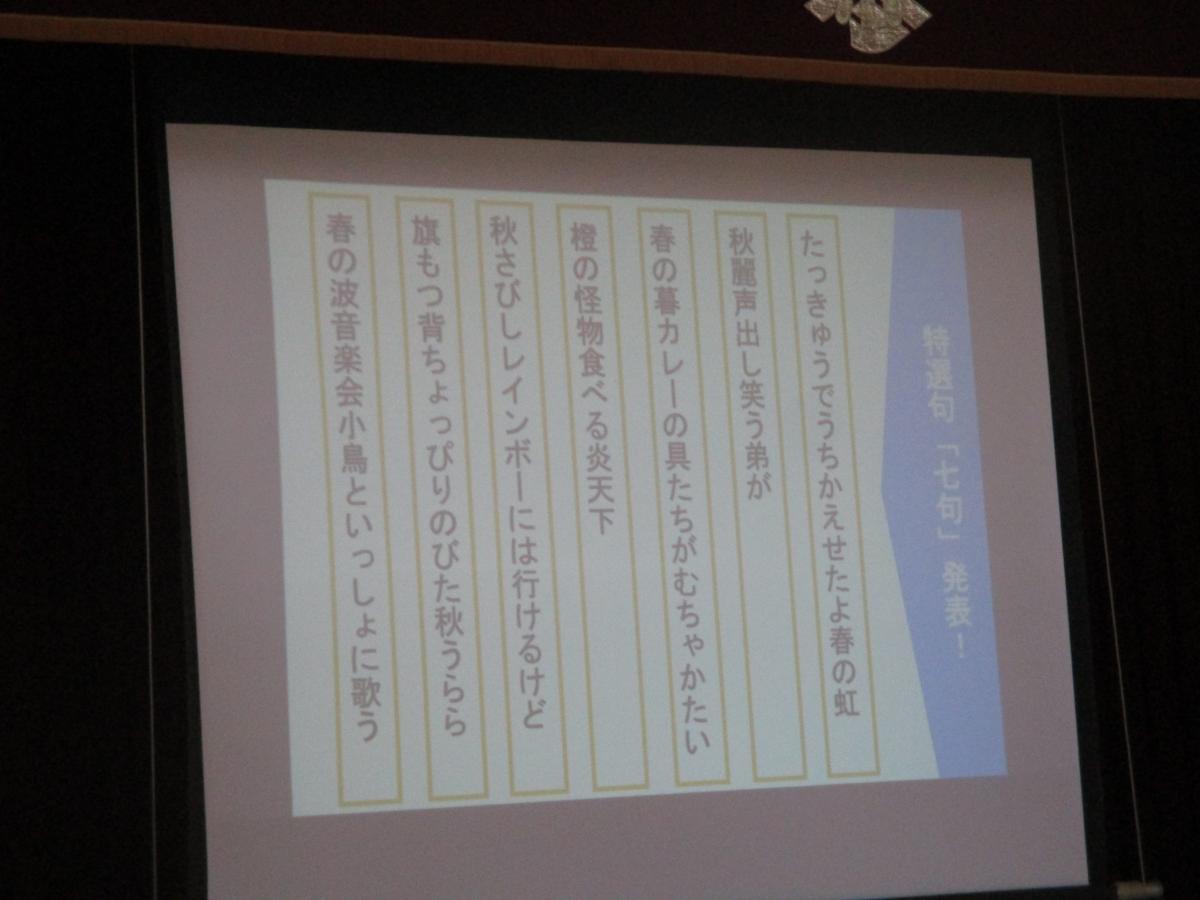 特選句「七句」発表！
たっきゅうでうちかえせたよ春の虹
秋麗声出し笑う弟が
春の暮カレーの具たちがむちゃかたい
橙の怪物食べる炎天下
秋さびしレインボーには行けるけど
旗もつ背ちょっぴりのびた秋うらら
春の波音楽会小鳥といっしょに歌う